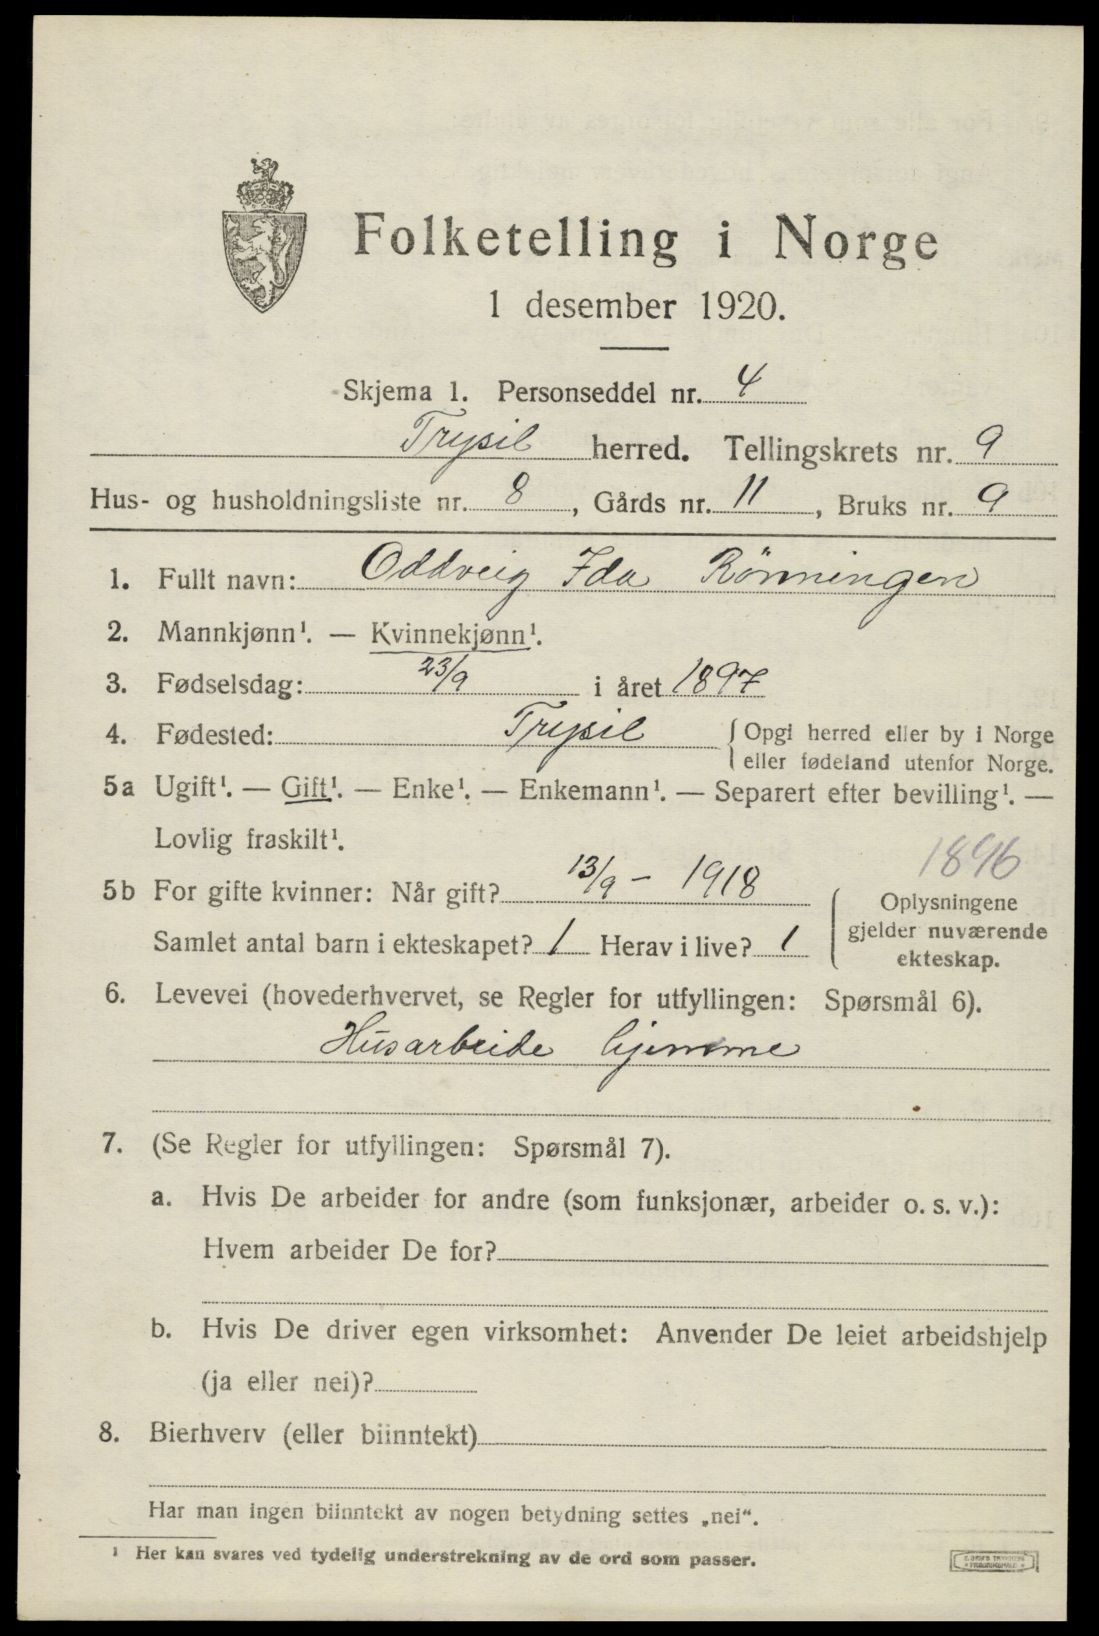 Folketelling i Norge
1 desember 1920.
Skjema 1. Personseddel nr. 4
Trysil herred. Tellingskrets nr. 9
Hus- og husholdningsliste nr. 8, Gårds nr. 11, Bruks nr. 9
1. Fullt navn: Oddveig Ida Rönningen
2. Mannkjønn¹. — Kvinnekjønn¹.
3. Fødselsdag: 23/9 i året 1897
4. Fødested: Trysil { Opgi herred eller by i Norge
eller fødeland utenfor Norge.
5a Ugift¹. — Gift¹. — Enke¹. — Enkemann¹. — Separert efter bevilling¹. —
Lovlig fraskilt¹.
1896
5b For gifte kvinner: Når gift? 13/9 - 1918
Samlet antal barn i ekteskapet? 1 Herav i live? 1
{ Oplysningene
gjelder nuværende
ekteskap.
6. Levevei (hovederhvervet, se Regler for utfyllingen: Spørsmål 6).
Husarbeide hjemme
7. (Se Regler for utfyllingen: Spørsmål 7).
a. Hvis De arbeider for andre (som funksjonær, arbeider o. s. v.):
Hvem arbeider De for?
b. Hvis De driver egen virksomhet: Anvender De leiet arbeidshjelp
(ja eller nei)?
8. Bierhverv (eller biinntekt)
Har man ingen biinntekt av nogen betydning settes „nei“.
¹ Her kan svares ved tydelig understrekning av de ord som passer.